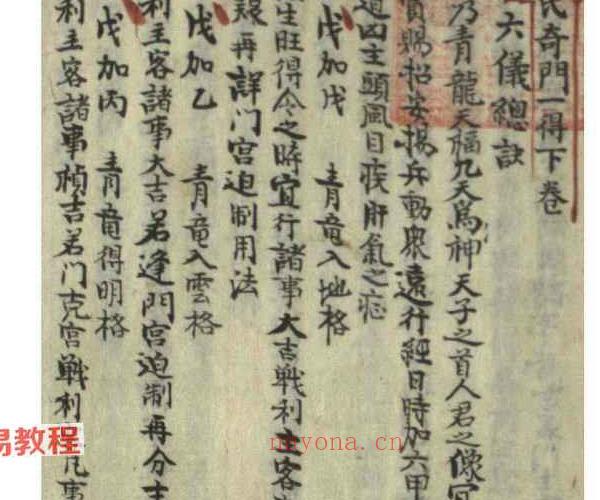 氏奇門一得下卷
六儀總訣
乃青龍天福九天為神天子之首人君之像宜
賞賜招安揚兵動眾遠行經日時加六甲
道凶主頭風目疾肝氣之症
戊加戊 青竜入地格
生旺得令之時宜行諸事大吉戦利主客
艰再詳门宮迫制用法
戊加乙 青竜入雲格
利主客諸事大吉若逢門宮迫制再分主
戊加丙 青竜得明格
利主客諸事禎吉若门克宮戦利 凡事
易教程
nayona.cn